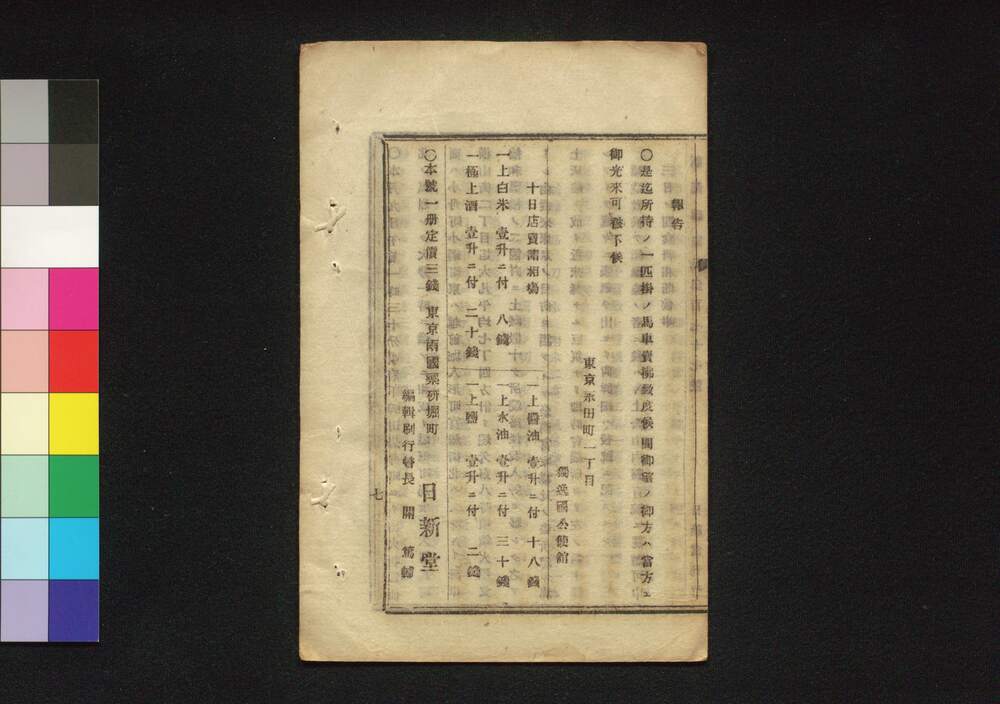 報告
〇是迄所持ノ一匹掛ノ馬車賣拂致度候間御望ノ御方ハ當方エ
御光來可被下候
東京永田町一丁目
獨逸國公使館
十日店賣諸相塲
一上醬油 壹升ニ付 十八錢
一上白米 壹升ニ付 八錢
一上水油 壹升ニ付 三十錢
一極上酒 壹升ニ付 二十錢
一上鹽 壹升ニ付 二錢
〇本號一册定價三錢 東京兩國藥研堀町 日新堂
編輯刷行會長 開 篤輔
七